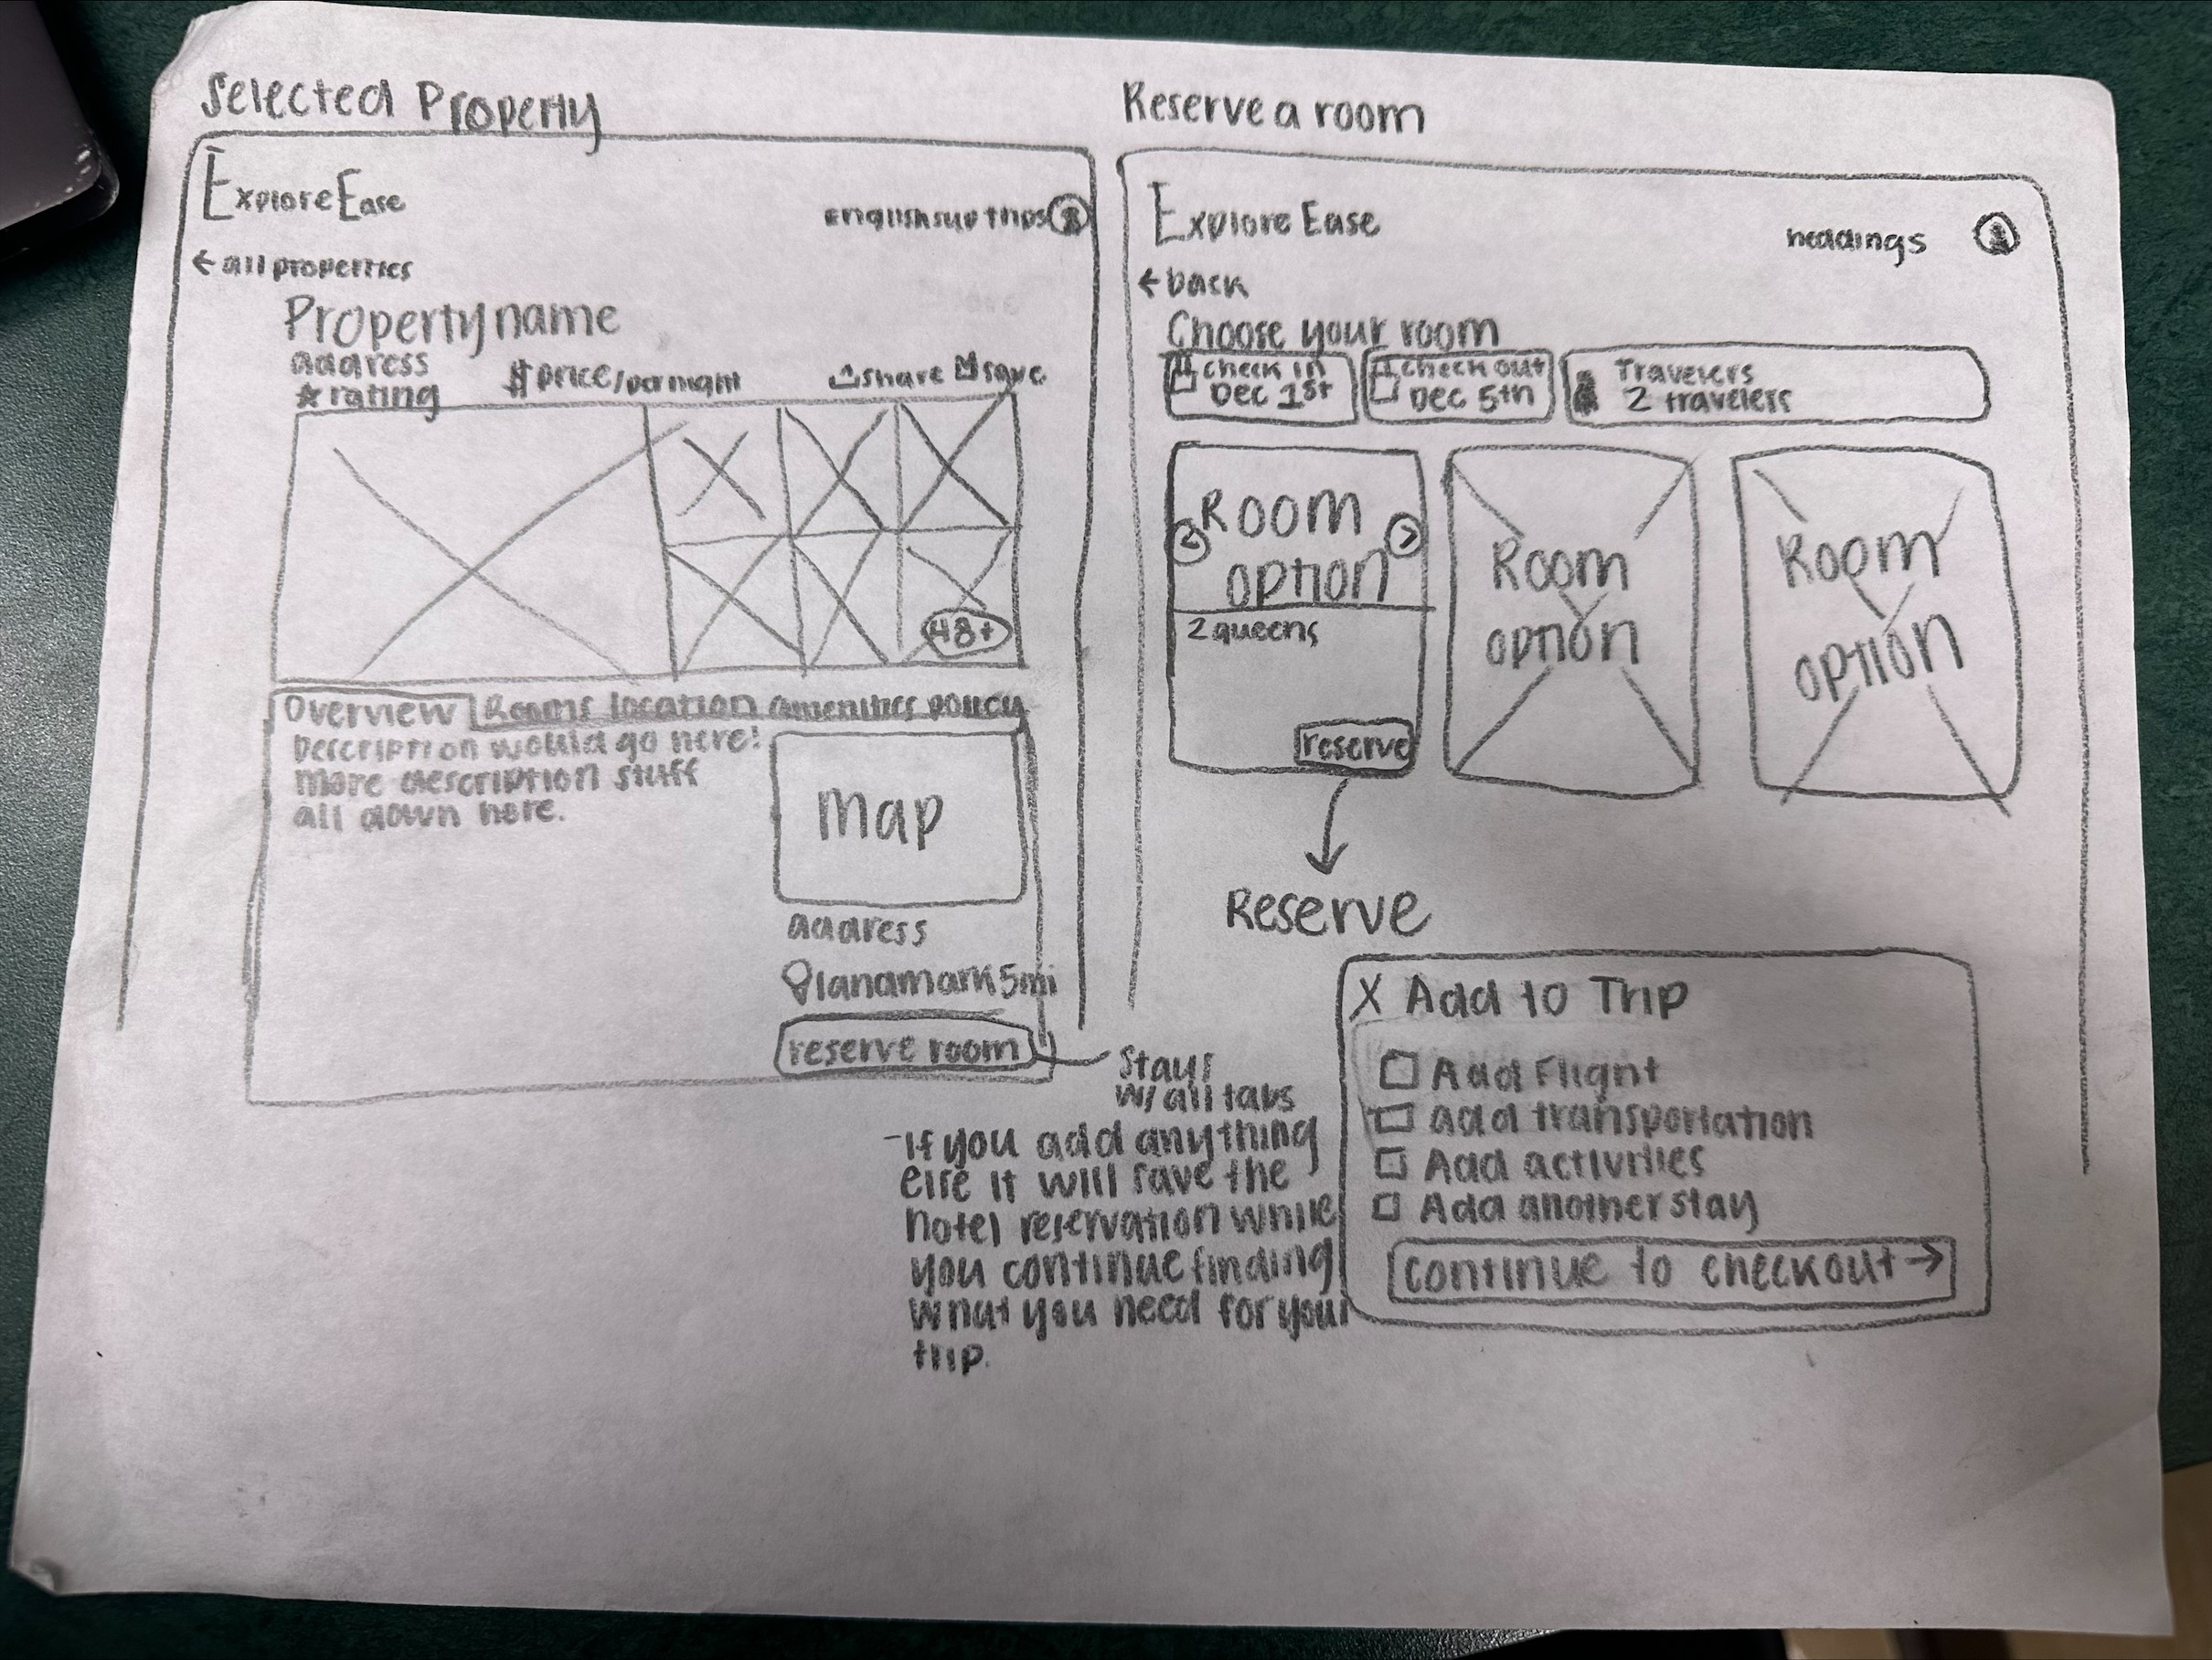 Selected Property
ExploreEase
English sup trips
← all properties
Property name
address
★ rating
$ price/per night
share save
48+
Overview Rooms location amenities policy
Description would go here!
more description stuff
all down here.
Map
address
landmark 5mi
reserve room
Stays
w/ all tabs
Reserve a room
Explore Ease
headings
← back
Choose your room
check in
Dec 1st
check out
Dec 5th
Travelers
2 travelers
Room
option
2 queens
reserve
Room
option
Room
option
Reserve
X Add to Trip
Add Flight
add transportation
Add activities
Add another stay
continue to checkout →
- If you add anything
else it will save the
hotel reservation while
you continue finding
what you need for your
trip.